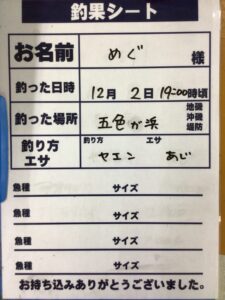 釣果シート
お名前 めぐ 様
釣った日時 12月 2日 19:00時頃
釣った場所 五色が浜 地磯 沖磯 堤防
釣り方 エサ 釣り方 ヤエン エサ あじ
魚種 サイズ
魚種 サイズ
魚種 サイズ
魚種 サイズ
お持ち込みありがとうございました。